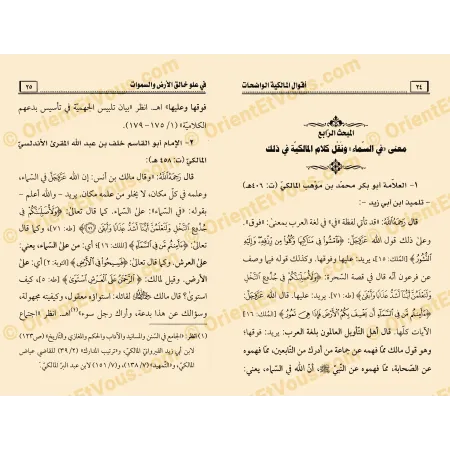 ٢٤
أقوال المالكية الواضحات
المبحث الرابع
معنى «في السماء» ونقل كلام المالكية في ذلك
١- العلامة أبو بكر محمد بن موهب المالكي (ت: ٤٠٦هـ)
- تلميذ ابن أبي زيد -
قال رحمه الله: «قد تأتي لفظة «في» في لغة العرب بمعنى: «فوق».
وعلى ذلك قول الله عز وجل: ﴿فَامْشُوا فِي مَنَاكِبِهَا وَكُلُوا مِن رِّزْقِهِ وَإِلَيْهِ
النُّشُورُ﴾ [الملك: ١٥]، يريد: عليها وفوقها. وكذلك قوله فيما وصف
عن فرعون أنه قال في قصة السحرة: ﴿وَلَأُصَلِّبَنَّكُمْ فِي جُذُوعِ النَّخْلِ
وَلَتَعْلَمُنَّ أَيُّنَا أَشَدُّ عَذَابًا وَأَبْقَى﴾ [طه: ٧١]. يريد: عليها. وقال الله عز وجل:
﴿ءَأَمِنتُم مَّن فِي السَّمَاءِ أَن يَخْسِفَ بِكُمُ الْأَرْضَ فَإِذَا هِيَ تَمُورُ﴾
الآيات كلها. قال أهل التأويل العالمون بلغة العرب: يريد: فوقها؛
وهو قول مالك مما فهمه عن جماعة من أدرك من التابعين، مما فهموه
عن الصحابة، مما فهموه عن النبي ﷺ، أن الله في السماء، يعني:
في علو خالق الأرض والسموات
٢٥
فوقها وعليها» اهـ. انظر «بيان تلبيس الجهمية في تأسيس بدعهم
الكلامية» (١/ ١٧٥-١٧٩).
٢- الإمام أبو القاسم خلف بن عبد الله المقرئ الأندلسي
المالكي (ت: ٤٥٨ هـ)
قال رحمه الله: «وقال مالك بن أنس: إن الله عز وجل في السماء،
وعلمه في كل مكان، لا يخلو من علمه مكان. يريد - والله أعلم -
بقوله: «في السماء»: على السماء كما قال تعالى: ﴿وَلَأُصَلِّبَنَّكُمْ فِي
جُذُوعِ النَّخْلِ وَلَتَعْلَمُنَّ أَيُّنَا أَشَدُّ عَذَابًا وَأَبْقَى (٧١)﴾ [طه: ٧١] وكما قال
تعالى: ﴿ءَأَمِنتُم مَّن فِي السَّمَاءِ﴾ [الملك: ١٦] أي: من على السماء، يعني:
على العرش. وكما قال تعالى: ﴿فَسِيحُوا فِي الْأَرْضِ﴾ [التوبة: ٢] أي: على
الأرض. وقيل لمالك: ﴿الرَّحْمَٰنُ عَلَى الْعَرْشِ اسْتَوَىٰ﴾ [طه: ٥]، كيف
استوى؟ قال مالك لقائله: استواؤه معقول، وكيفيته مجهولة،
وسؤالك عن هذا بدعة، وأراك رجل سوء»(١) اهـ. انظر «اجتماع
(١) انظر: «الجامع في السنن والآداب والحكم والمغازي والتاريخ» (ص١٢٣)
لابن أبي زيد القيرواني المالكي، و«ترتيب المدارك» (٢/ ٣٩) للقاضي عياض
المالكي، و«التمهيد» (٧/ ١٣٨) و(٧/ ١٥١) لابن عبد البر المالكي.
© OrientEtVous.com